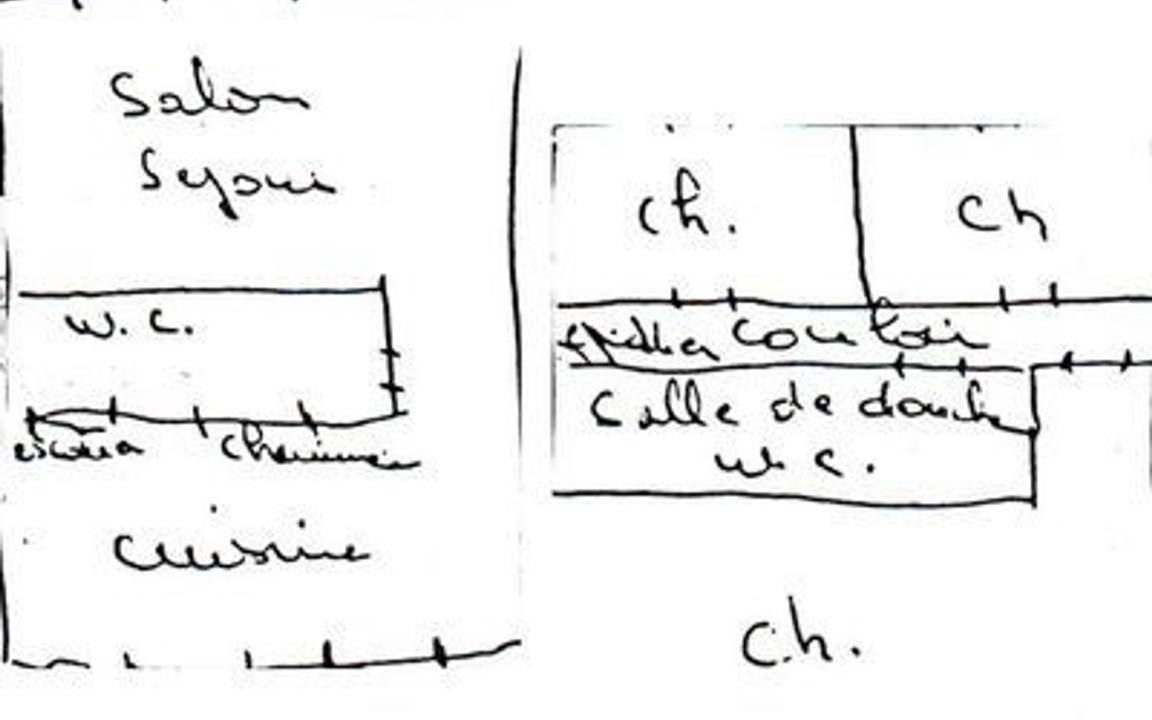 Salon
Sejour
W.C.
cheminée
cuisine
ch.
ch
couloir
Salle de douche
w.c.
ch.